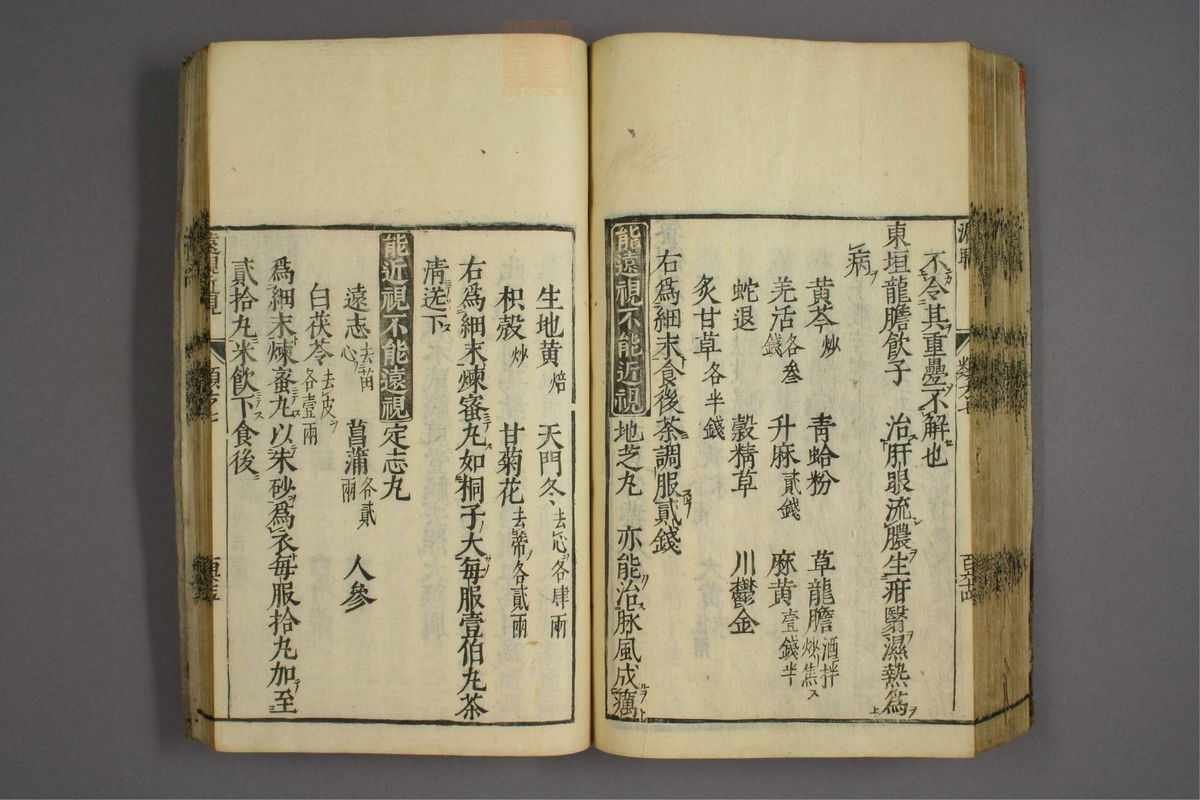 不令其重疊不解也
東垣龍膽飲子 治肝眼流膿生疳翳濕熱爲
病
黃芩炒 青蛤粉 草龍膽酒拌炒焦
羌活各叄錢 升麻貳錢 麻黃壹錢半
蛇退 穀精草 川鬱金
炙甘草各半錢
右爲細末食後茶調服貳錢
能遠視不能近視 地芝丸 亦能治脉風成癘
生地黃焙 天門冬去心各肆兩
枳殼炒 甘菊花去蒂各貳兩
右爲細末煉蜜丸如桐子大每服壹伯丸茶
清送下
能近視不能遠視 定志丸
遠志去苗心 菖蒲各貳兩 人參
白茯苓去皮各壹兩
爲細末煉蜜丸以朱砂爲衣每服拾丸加至
貳拾丸米飲下食後